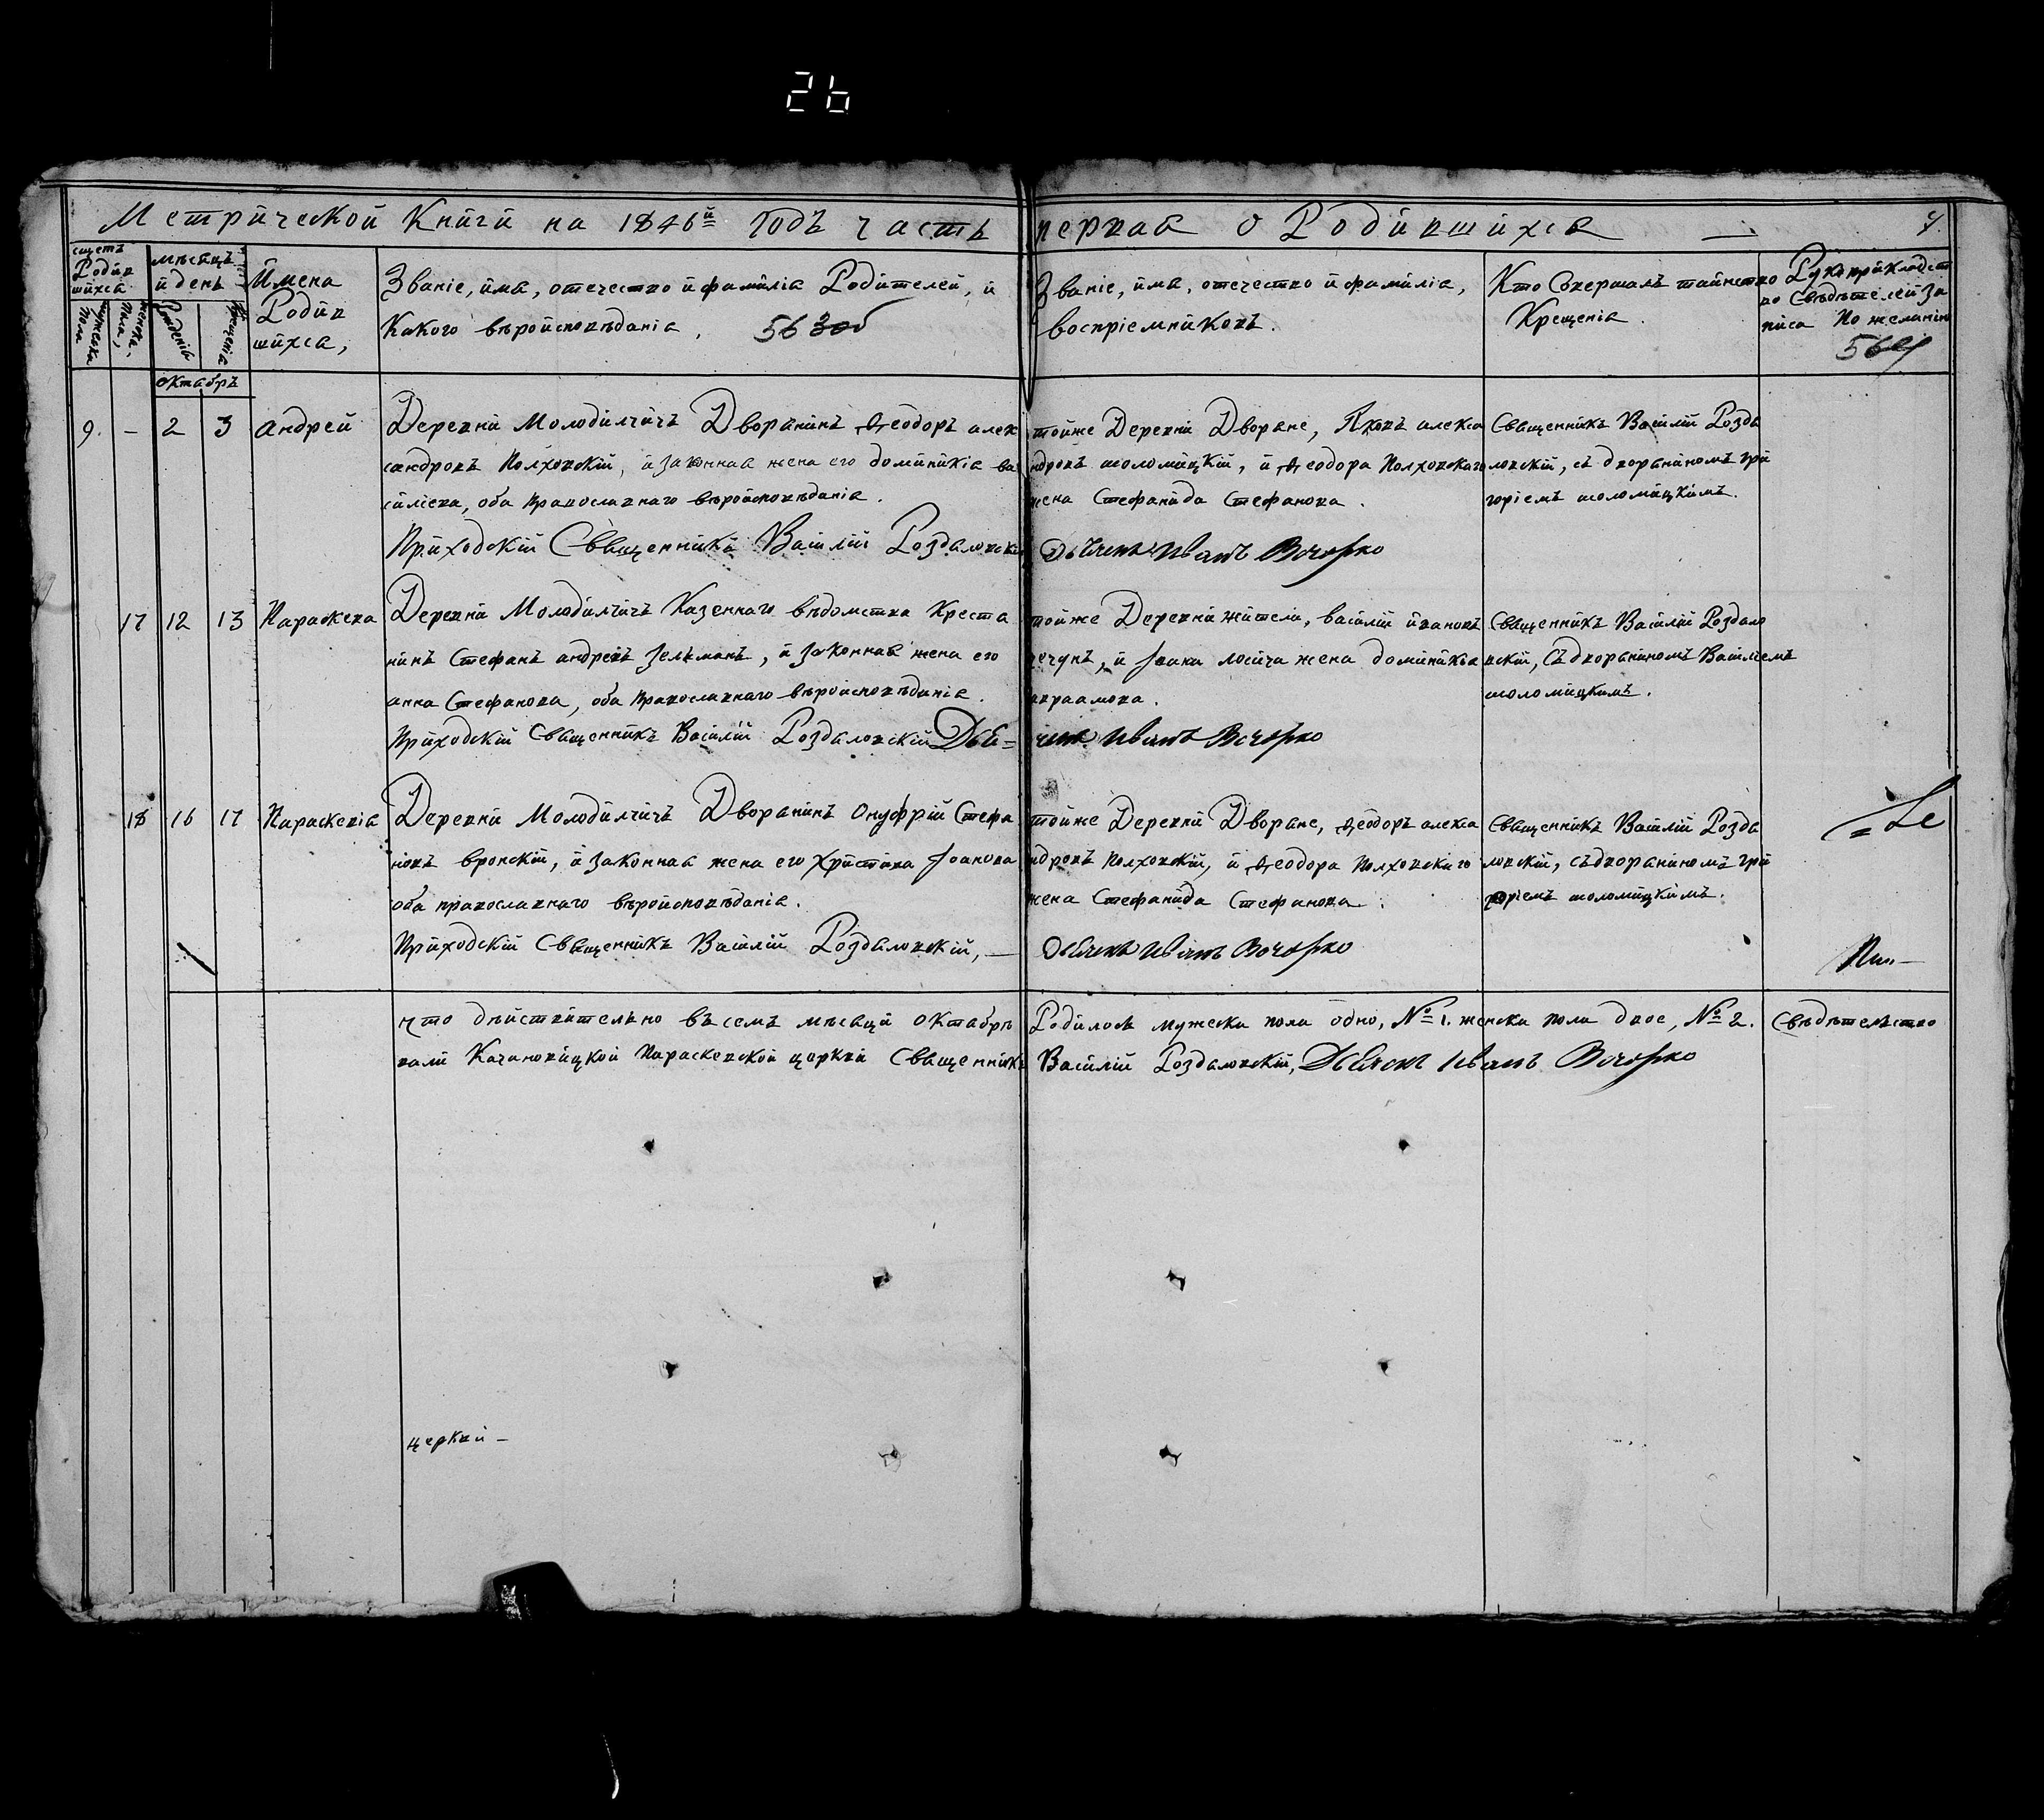 26
Метрической Книги на 1846й Годъ часть первая о Родившихся
щетъ Родившихся
мѣсяцъ и день
Имена Родившихся,
мужеска пола
женска пола,
Рожденія
Крещенія
Званіе, имя, отечество и фамилія Родителей, и
Какого вѣроисповѣданія,
Званіе, имя, отечество и фамилія,
воспріемниковъ.
Кто Совершалъ таинство
Крещенія.
Рукоприкладст
во Свѣдѣтелей за
писа По желанію
октябрь
9. – 2 3 андрей
Деревни Молодилчичъ Дворянинъ Ѳеодоръ алек
сандровъ Полховскій, и законная жена его доминикія ва
силіева, оба православнаго вѣроисповѣданія.
Приходскій Священникъ Василій Роздаловскій
тойже Деревни Дворяне, Яковъ алекса
ндровъ шоломицкій, и Ѳеодора Полховскаго
жена Стефанида Стефанова.
Дьячекъ Иванъ
Священникъ Василій Розда
ловскій, съ дворяниномъ гри
горіемъ шоломицкимъ.
17 12 13 Параскева
Деревни Молодилчичъ Казеннаго вѣдомства Креста
нинъ Стефанъ андреевъ Зельманъ, и законная жена его
анна Стефанова, оба православнаго вѣроисповѣданія.
Приходскій Священникъ Василій Роздаловскій Дья=
тойже Деревни жители, василій ивановъ
чечунъ, и Іоана лосича жена доминикія
авраамова.
чекъ Иванъ
Священникъ Василій Роздало
вскій, съ дворяниномъ Василіемъ
шоломицкимъ.
18 16 17 Параскевія
Деревни Молодилчичъ Дворянинъ Онуфрій Стефа
новъ вронскій, и законная жена его Христина Іоанова
оба православнаго вѣроисповѣданія.
Приходскій Священникъ Василій Роздаловскій, —
тойже Деревни Дворяне, Ѳеодоръ алекса
ндровъ Полховскій, и Ѳеодора Полховскаго
жена Стефанида Стефанова.
Дьячекъ Иванъ
Священникъ Василій Розда
ловскій, съ дворяниномъ гри
горіемъ шоломицкимъ.
что дѣйствительно въ семъ мѣсяци октябрѣ Родилось мужеска пола одно, № 1. женска пола двое, № 2. Свѣдѣтельство
вали Качановицкой Параскевской церкви Священникъ Василій Роздаловскій, Дьячекъ Иванъ
церкви –